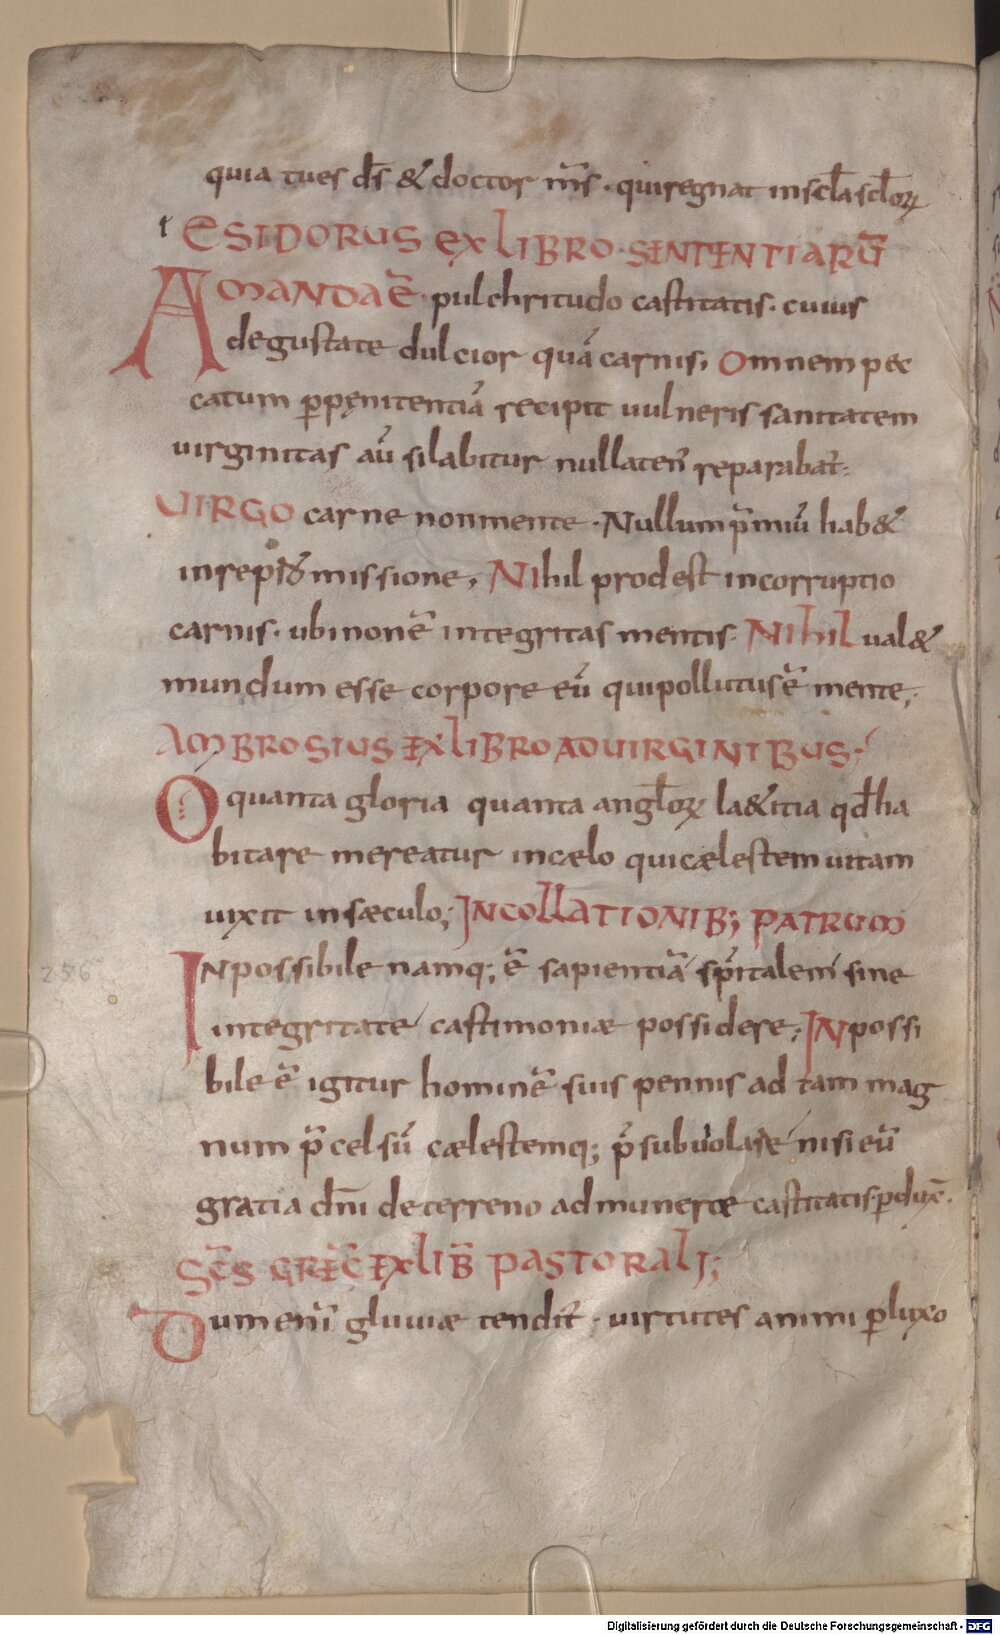 quia tu es d̅s & doctor m̅s · qui regnat in sc̅la sc̅lorꝝ
ESIDORUS EX LIBRO · SENTENTIARU̅
AMANDA E̅ · pulchritudo castitatis · cuius
degustate dulcior qua̅ carnis, Omnem pec
catum ꝑ pęnitentia̅ recipit uulneris sanitatem
uirginitas au̅ si labitur nullaten̅ reparabat̅ :
VIRGO carne non mente · Nullum p̅miu̅ hab&
in repr̅omissione, NIhil prodest incorruptio
carnis · ubi non e̅ integritas mentis · NIhil ual&
mundum esse corpore eu̅ qui pollutus e̅ mente,
AMBROSIUS EX LIBRO AD UIRGINIBUS ·
O quanta gloria quanta angl̅orꝝ la&itia qd̅ ha
bitare mereatur in cælo qui cælestem uitam
uixit in sæculo; IN COLLATIONIB; PATRUM
INpossibile namq; e̅ sapientia̅ sp̅italem sine
integritate castimoniæ possidere; INpossi
bile e̅ igitur homine̅ suis pennis ad tam mag
num p̅celsu̅ cælestemq; p̅su buolare nisi eu̅
gratia dn̅i de terreno ad munerte castitatis · ꝑdux̅ ·
SC̅S GRE̅G EX LIB̅ PASTORALI;
Dum eni̅ gluuiæ tendit̅ · uirtutes animi ꝑ luxo
256
Digitalisierung gefördert durch die Deutsche Forschungsgemeinschaft - DFG